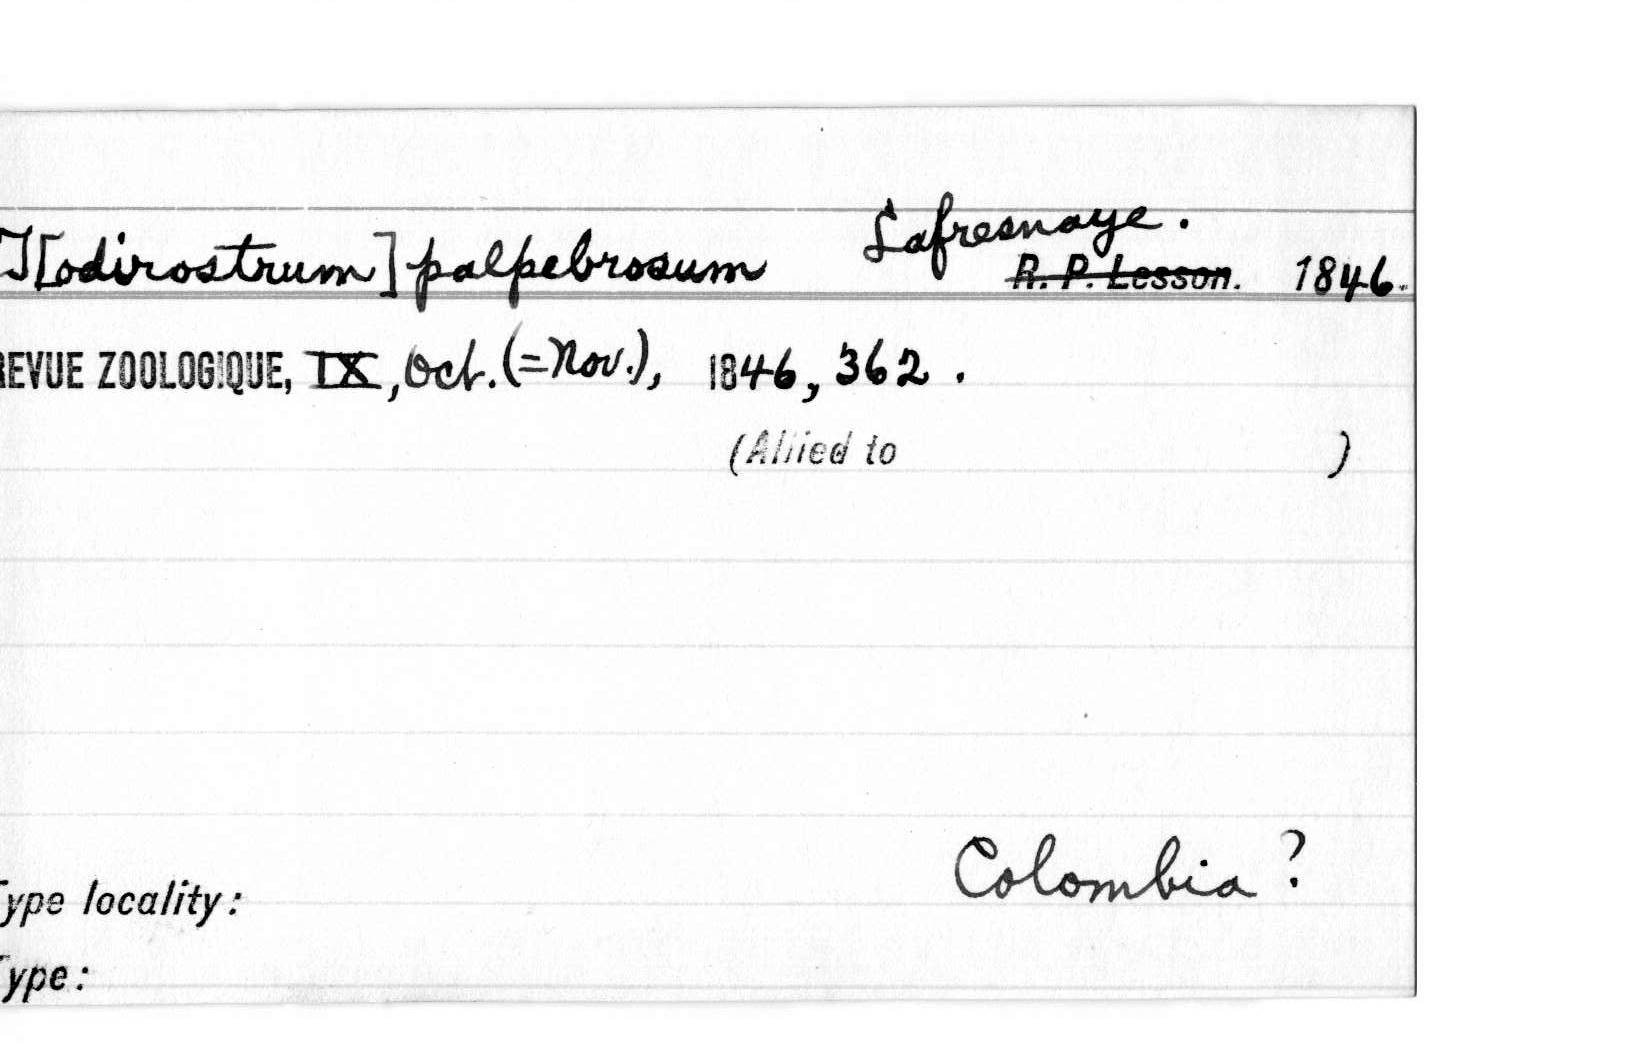 T[odirostrum] palpebrosum Lafresnaye.
R. P. Lesson. 1846.
REVUE ZOOLOGIQUE, IX, Oct. (=Nov.), 1846, 362.
(Allied to )
Colombia?
Type locality:
Type: